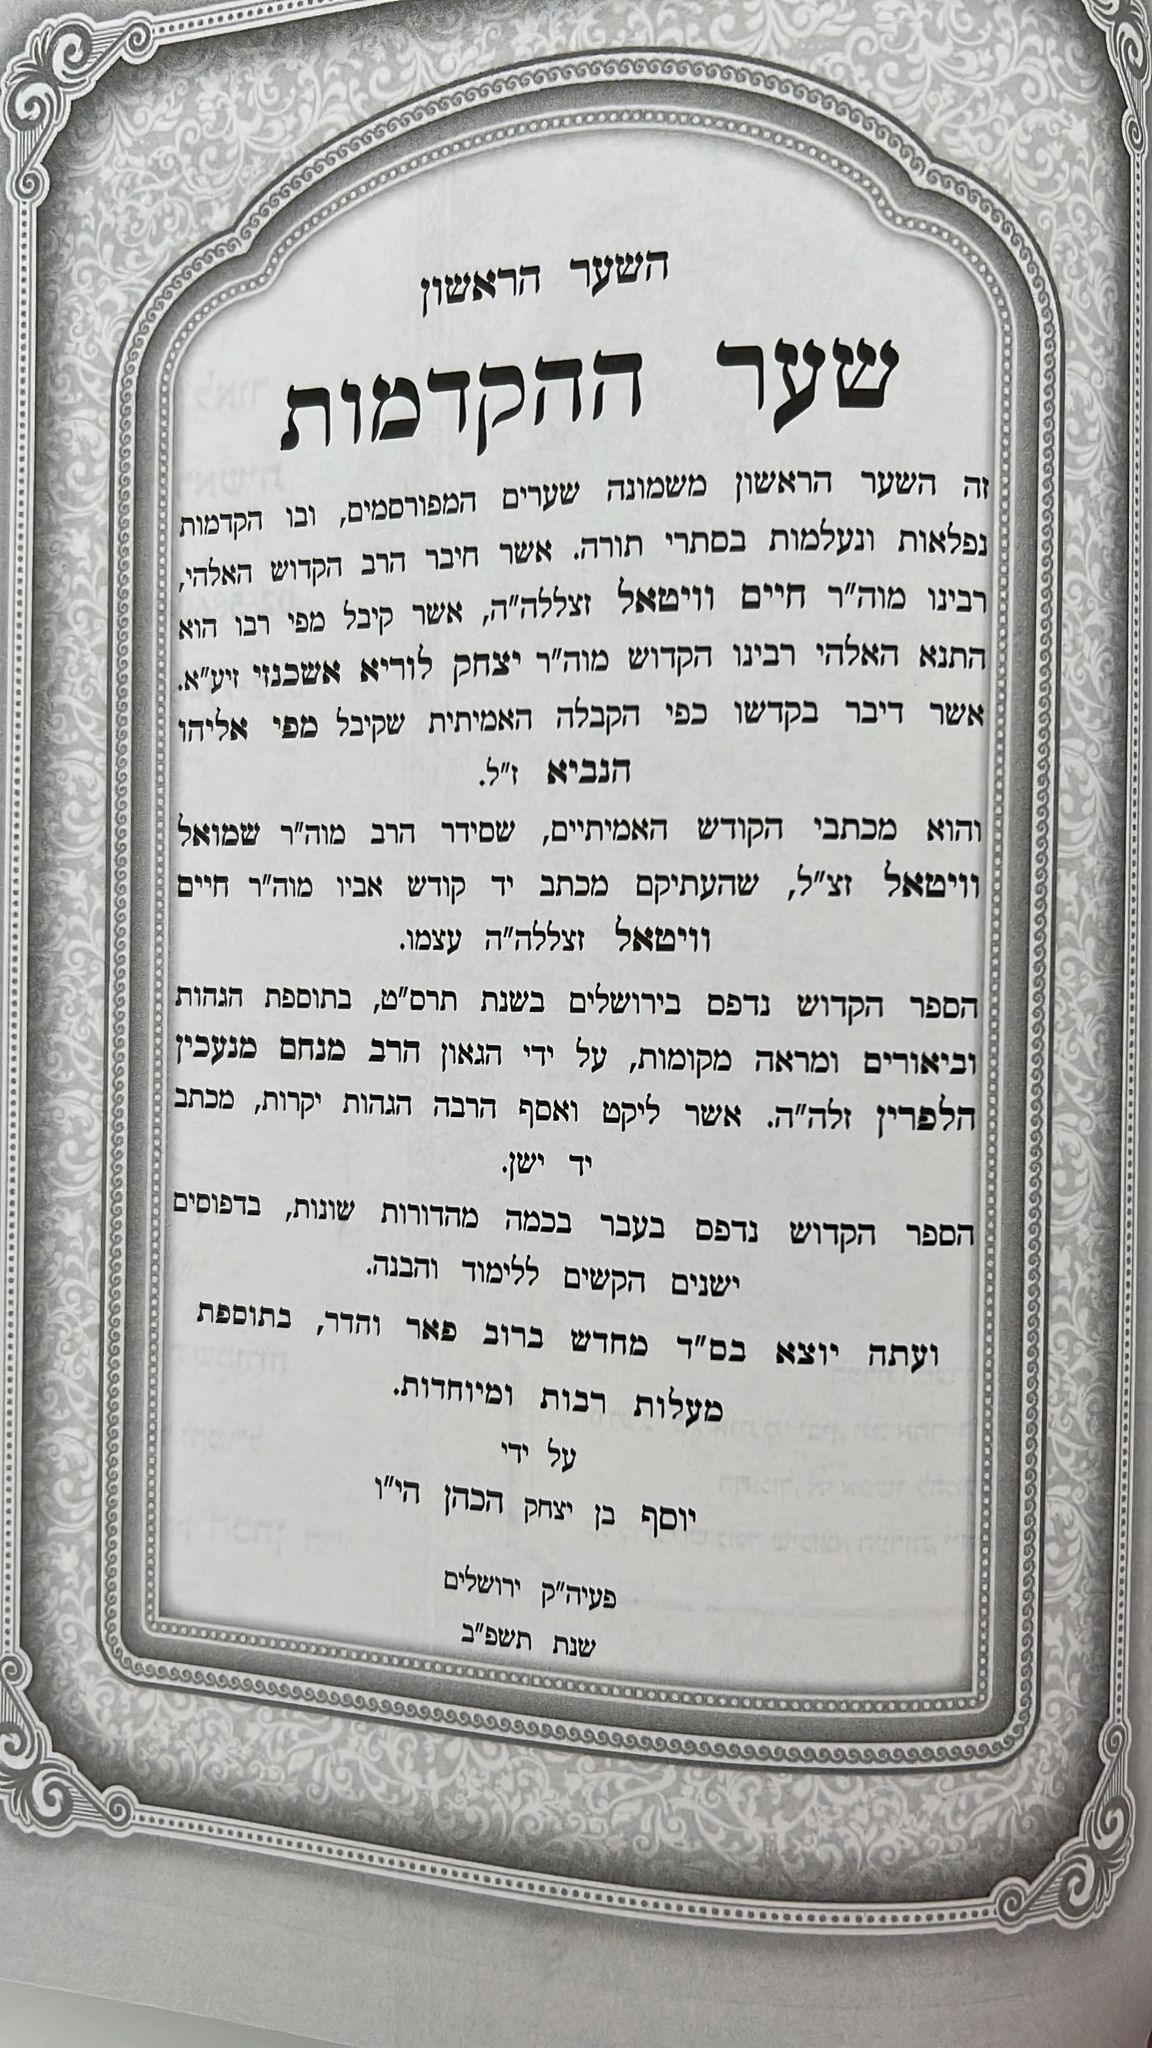 השער הראשון
שער ההקדמות
זה השער הראשון משמונה שערים המפורסמים, ובו הקדמות
נפלאות ונעלמות בסתרי תורה. אשר חיבר הרב הקדוש האלהי,
רבינו מוה"ר חיים וויטאל זצללה"ה, אשר קיבל מפי רבו הוא
התנא האלהי רבינו הקדוש מוה"ר יצחק לוריא אשכנזי זיע"א.
אשר דיבר בקדשו כפי הקבלה האמיתית שקיבל מפי אליהו
הנביא ז"ל.
והוא מכתבי הקודש האמיתיים, שסידר הרב מוה"ר שמואל
וויטאל זצ"ל, שהעתיקם מכתב יד קודש אביו מוה"ר חיים
וויטאל זצללה"ה עצמו.
הספר הקדוש נדפס בירושלים בשנת תרס"ט, בתוספת הגהות
וביאורים ומראה מקומות, על ידי הגאון הרב מנחם מנעכין
הלפרין זלה"ה. אשר ליקט ואסף הרבה הגהות יקרות, מכתב
יד ישן.
הספר הקדוש נדפס בעבר בכמה מהדורות שונות, בדפוסים
ישנים הקשים ללימוד והבנה.
ועתה יוצא בס"ד מחדש ברוב פאר והדר, בתוספת
מעלות רבות ומיוחדות.
על ידי
יוסף בן יצחק הכהן הי"ו
פעיה"ק ירושלים
שנת תשפ"ב